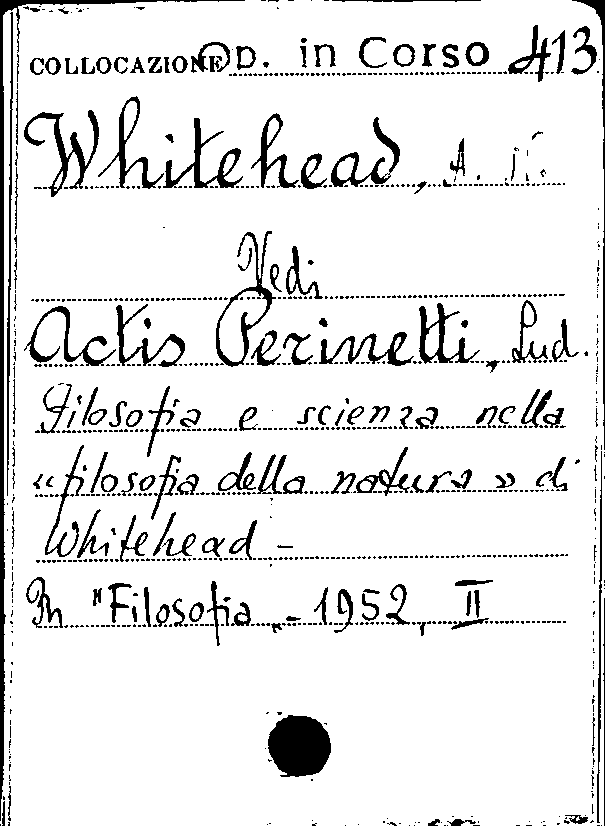 COLLOCAZIONE Op. in Corso 413
Whitehead, A. N.
Vedi
Actis Perinetti, Lud.
Filosofia e scienza nella
«filosofia della natura» di
Whitehead -
In "Filosofia„ - 1952, II